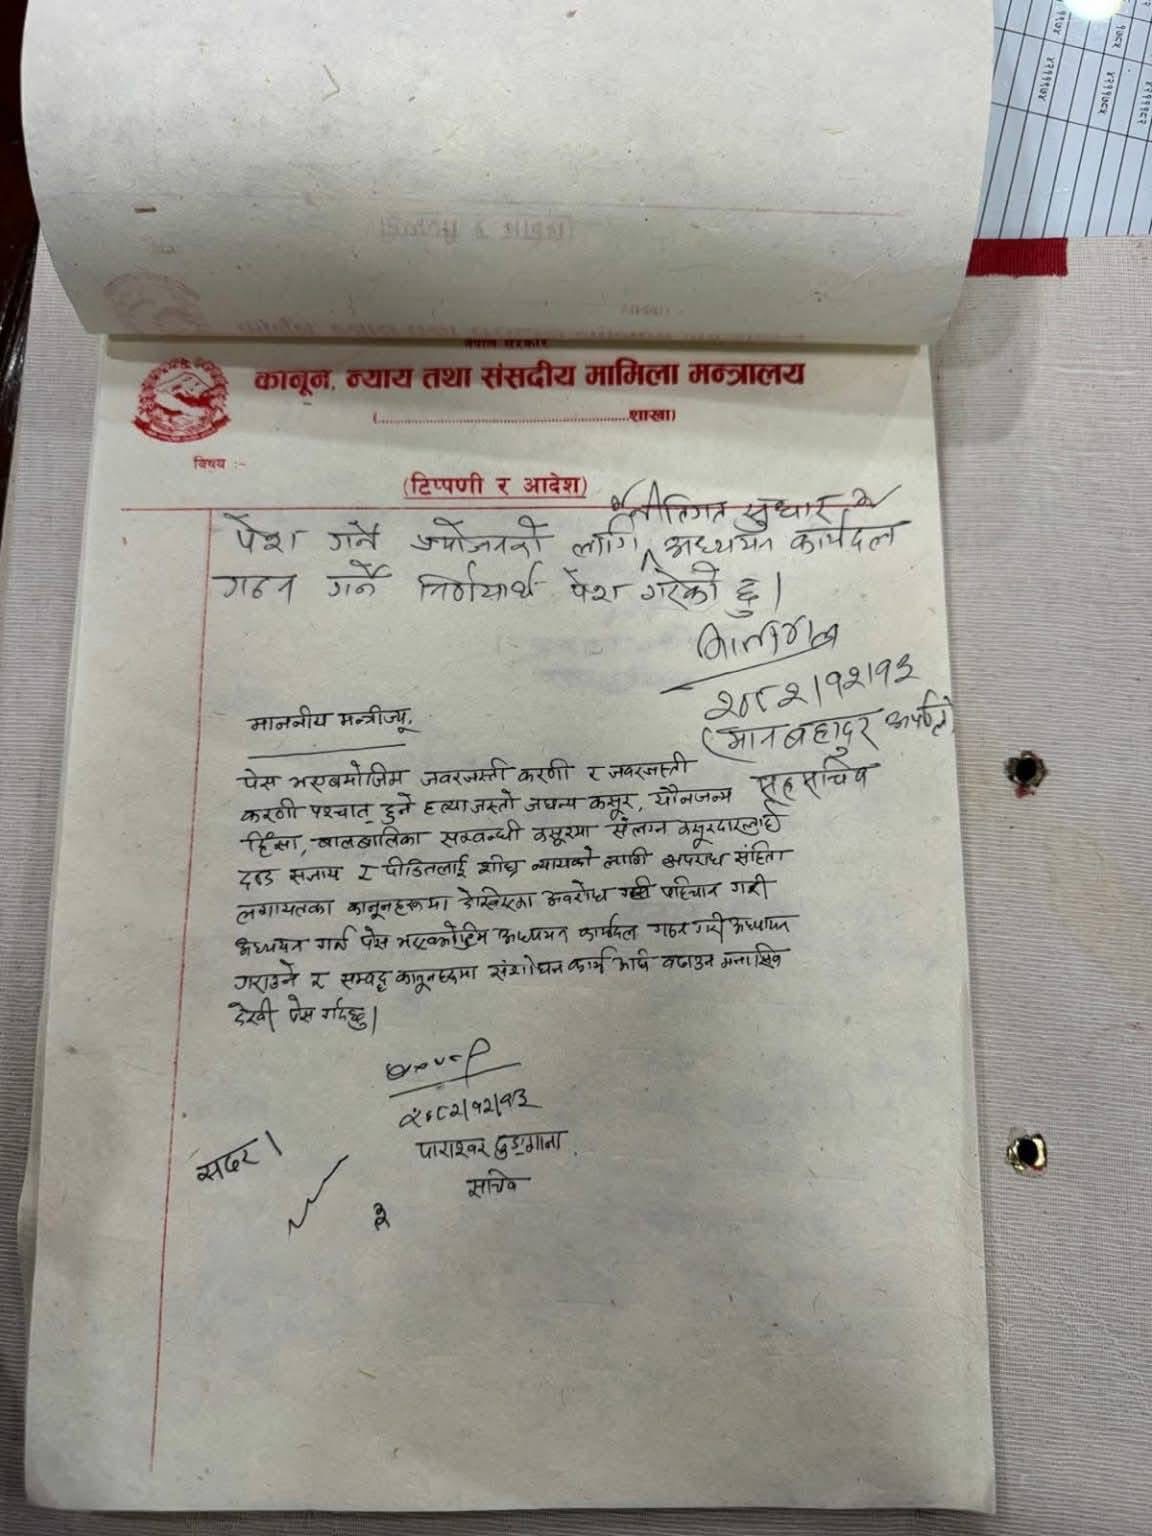 नेपाल सरकार
कानून, न्याय तथा संसदीय मामिला मन्त्रालय
(..........................................................शाखा)
विषय :-
(टिप्पणी र आदेश)
नीतिगत सुधार
पेश गर्ने प्रयोजनको लागि अध्ययन कार्यदल
गठन गर्न निर्णयार्थ पेश गरेको छु।
२०८२।१२।१३
(मानबहादुर
सहसचिव
माननीय मन्त्रीज्यू,
पेस भएबमोजिम जवरजस्ती करणी र जवरजस्ती
करणी पश्चात् हुने हत्या जस्तो जघन्य कसूर, यौनजन्य
हिंसा, बालबालिका सम्बन्धी कसूरमा संलग्न कसूरदारलाई
दण्ड सजाय र पीडितलाई शीघ्र न्यायको लागि अपराध संहिता
लगायतका कानूनहरूमा देखिएका अवरोध पहिचान गरी
अध्ययन गर्न पेस भएबमोजिम अध्ययन कार्यदल गठन गरी अध्ययन
गराउने र सम्वद्ध कानूनहरूमा संशोधन कार्य अघि बढाउन मनासिव
देखी पेस गर्दछु।
२०८२।१२।१३
पाराश्वर ढुङ्गाना
सचिव
सदर।
३